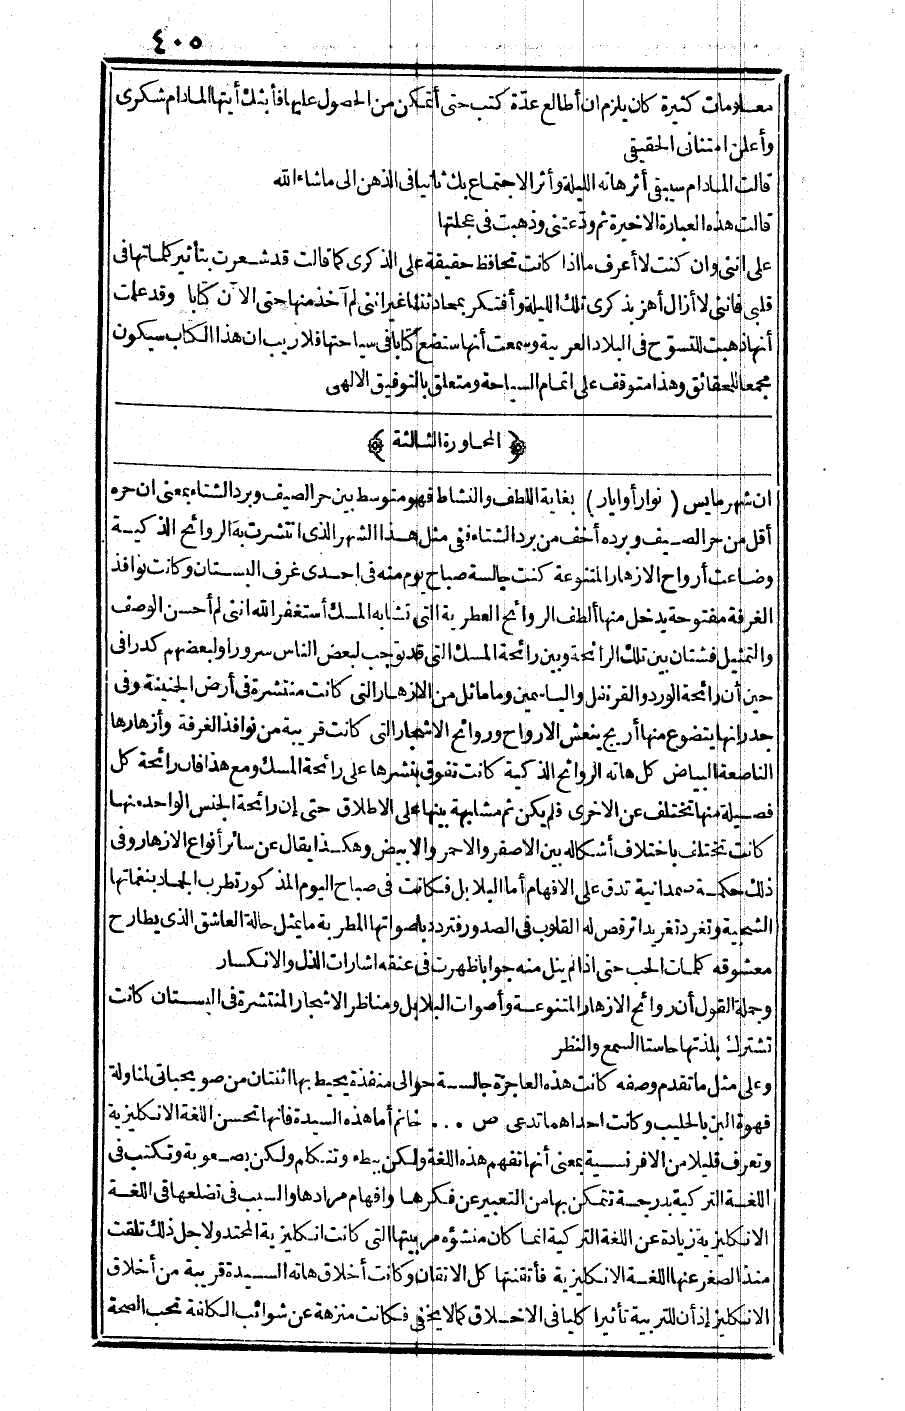 ٤٠٥
معلومات كثيرة كان يلزم ان أطالع عدّة كتب حتى أتمكن من الحصول عليها فأبثك أيتها المادام شكرى
وأعلن امتنانى الحقيقى
قالت المادام سيبقى أثر هاته الليلة وأثر الاجتماع بك ثانيا فى الذهن الى ماشاء الله
قالت هذه العبارة الاخيرة ثم ودّعتنى وذهبت فى عجلتها
على اننى وان كنت لا أعرف ما اذا كانت تحافظ حقيقة على الذكرى كما قالت قد شعرت بتأثير كلماتها فى
قلبى فاننى لا أزال أهز بذكرى تلك الليلة وأفتكر بمحادثتنا غير اننى لم آخذ منها حتى الآن كتابا وقد علمت
أنها ذهبت للتسوّح فى البلاد العربية وسمعت أنها ستضع كتابا فى سياحتها فلا ريب ان هذا الكتاب سيكون
مجمعا للحقائق وهذا متوقف على اتمام السياحة ومتعلق بالتوفيق الالهى
﴿ المحاورة الثالثة ﴾
ان شهر مايس ( نوار أو ايار ) بغاية اللطف والنشاط فهو متوسط بين حر الصيف وبرد الشتاء بمعنى ان حره
أقل من حر الصيف وبرده أخف من برد الشتاء ففى مثل هذا الشهر الذى انتشرت به الروائح الذكية
وضاعت أرواح الازهار المتنوعة كنت جالسة صباح يوم منه فى احدى غرف البستان وكانت نوافذ
الغرفة مفتوحة يدخل منها ألطف الروائح العطرية التى تشابه المسك أستغفر الله اننى لم أحسن الوصف
والتمثيل فشتان بين تلك الرائحة وبين رائحة المسك التى قد توجب لبعض الناس سرورا ولبعضهم كدرا فى
حين أن رائحة الورد والقرنفل والياسمين وما ماثل من الازهار التى كانت منتشرة فى أرض الجنينة وفى
جدرانها يتضوع منها أريج ينعش الارواح وروائح الاشجار التى كانت قريبة من نوافذ الغرفة وأزهارها
الناصعة البياض كل هاته الروائح الذكية كانت تفوق بنشرها على رائحة المسك ومع هذا فان رائحة كل
فصيلة منها تختلف عن الاخرى فلم يكن ثم مشابهة بينها على الاطلاق حتى إن رائحة الجنس الواحد منها
كانت تختلف باختلاف أشكاله بين الاصفر والاحمر والابيض وهكذا يقال عن سائر أنواع الازهار وفى
ذلك حكمة صمدانية تدق على الافهام أما البلابل فكانت فى صباح اليوم المذكور تطرب الجماد بنغماتها
الشجية وتغرد تغريدا ترقص له القلوب فى الصدور فتردد باصواتها المطربة ما يمثل حالة العاشق الذى يطارح
معشوقه كلمات الحب حتى اذا لم ينل منه جوابا ظهرت فى عنقه اشارات الذل والانكسار
وجملة القول أن روائح الازهار المتنوعة وأصوات البلابل ومناظر الاشجار المنتشرة فى البستان كانت
تشترك بلذتها حاستا السمع والنظر
وعلى مثل ما تقدم وصفه كانت هذه العاجزة جالسة حوالى منفذة يحيط بها اثنتان من صويحباتى لمناولة
قهوة البن بالحليب وكانت احداهما تدعى ص ... خانم أما هذه السيدة فانها تحسن اللغة الانكليزية
وتعرف قليلا من الافرنسية بمعنى أنها تفهم هذه اللغة ولكن ببطء وتتكلم ولكن بصعوبة وتكتب فى
اللغة التركية بدرجة تتمكن بها من التعبير عن فكرها وافهام مرادها والسبب فى تضلعها فى اللغة
الانكليزية زيادة عن اللغة التركية انما كان منشؤه مربيتها التى كانت انكليزية المحتد ولاجل ذلك تلقت
منذ الصغر عنها اللغة الانكليزية فأتقنتها كل الاتقان وكانت أخلاق هاته السيدة قريبة من أخلاق
الانكليز إذ أن للتربية تأثيرا كليا فى الاخلاق كما لا يخفى فكانت منزهة عن شوائب الكلفة تحب الصحة